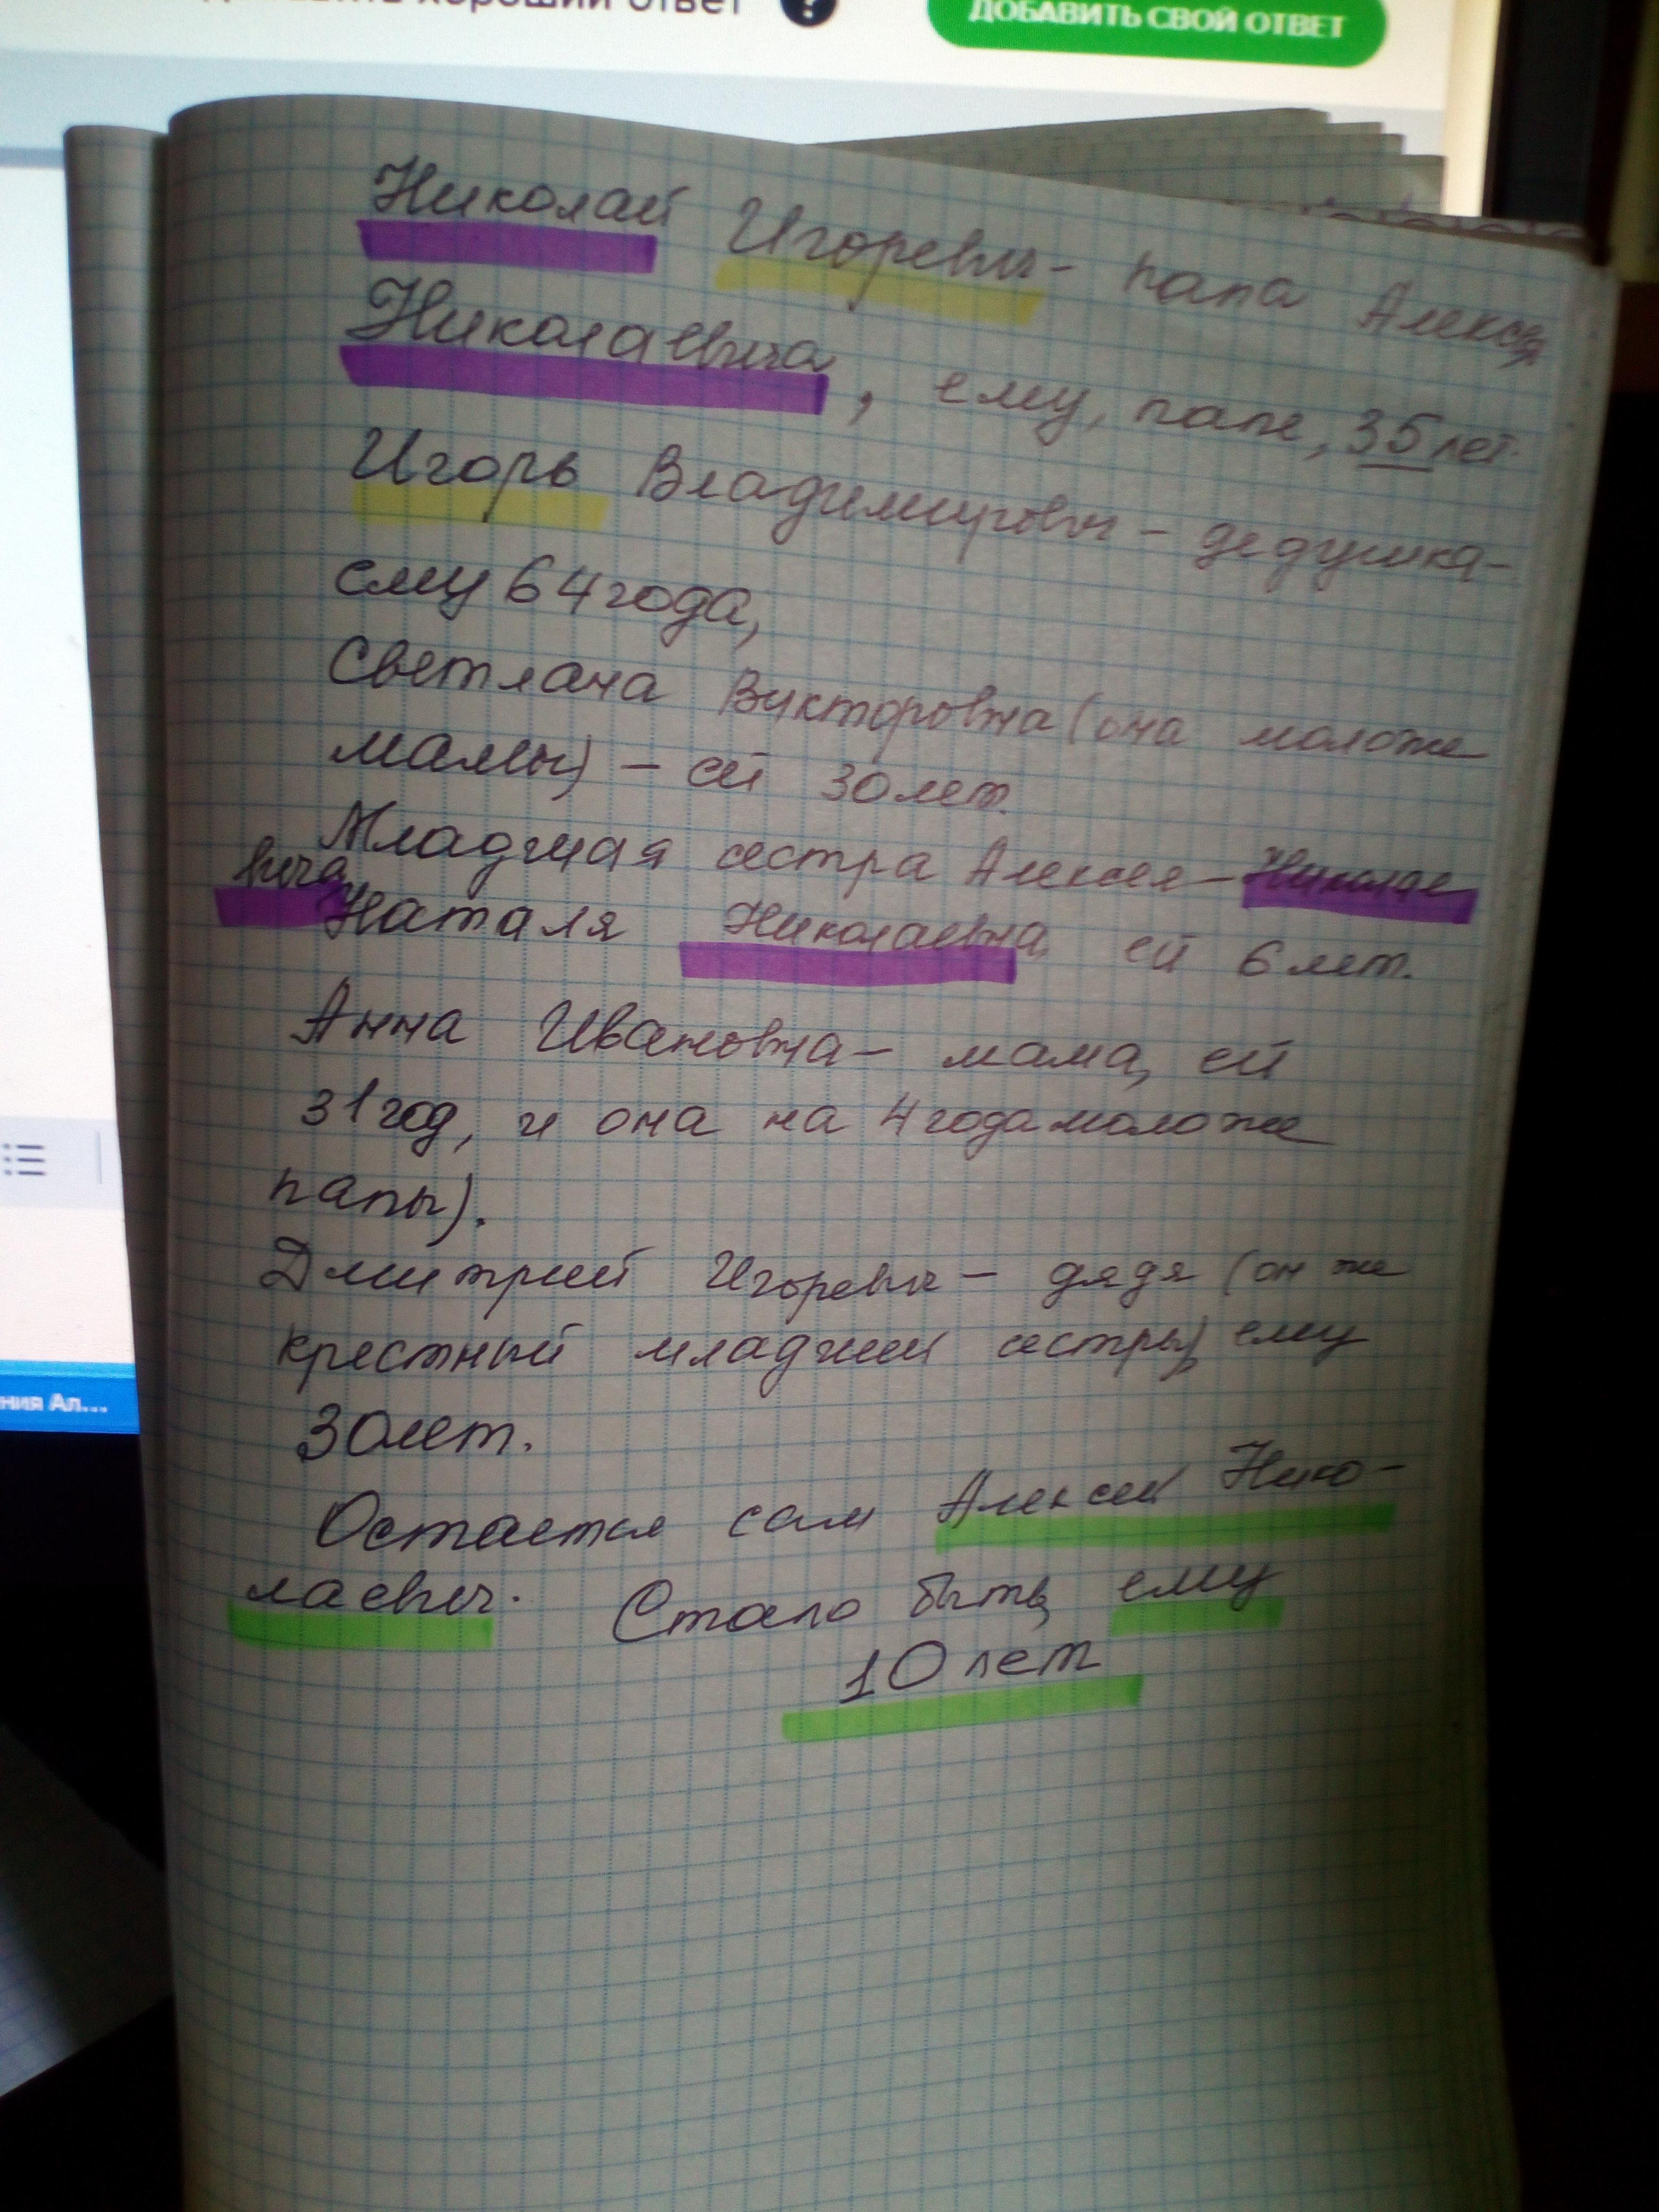 хороший ответ ?
ДОБАВИТЬ СВОЙ ОТВЕТ
Николай Игоревич - папа Алексея
Николаевича, ему, папе, 35 лет.
Игорь Владимирович - дедушка -
ему 64 года,
Светлана Викторовна (она моложе
мамы) - ей 30 лет.
Младшая сестра Алексея - Николае
вича Наталя Николаевна ей 6 лет.
Анна Ивановна - мама, ей
31 год, и она на 4 года моложе
папы).
Дмитрий Игоревич - дядя (он же
крестный младшей сестры) ему
30 лет.
Остается сам Алексей Нико-
лаевич. Стало быть, ему
10 лет
ния Ал...